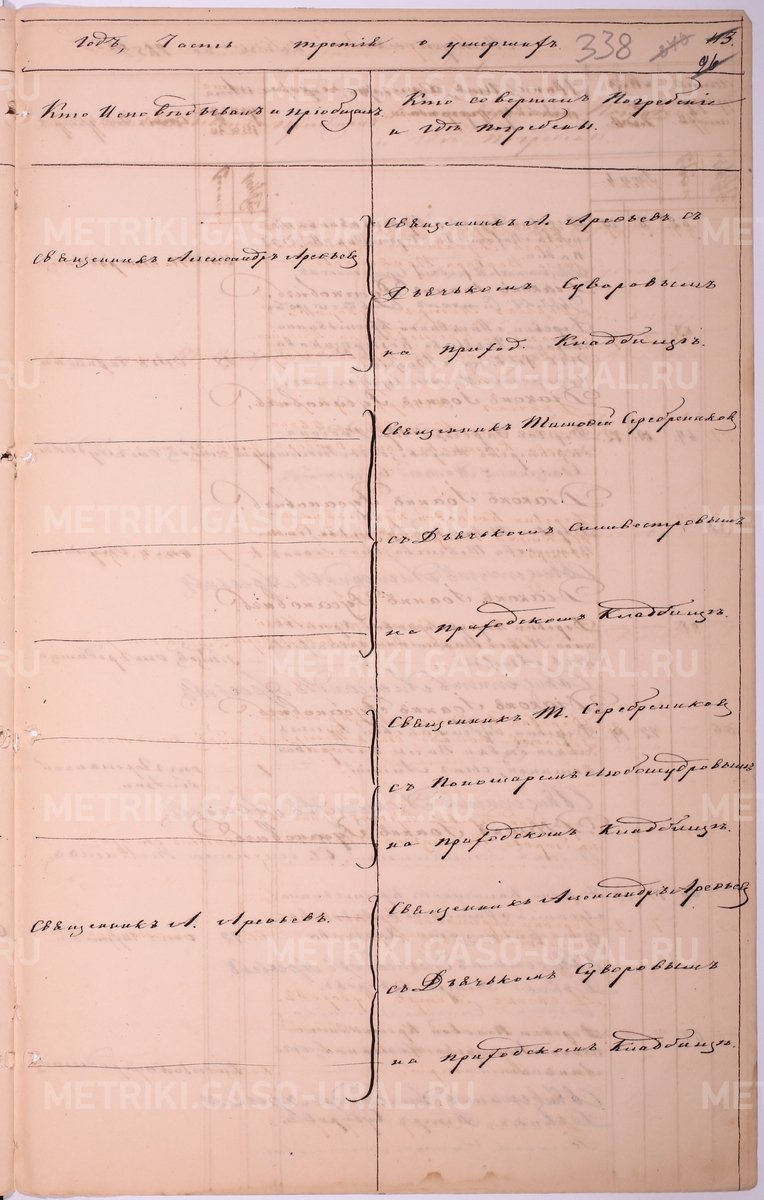 Годъ, Часть третія о умершихъ. 338
113.
96
Кто Исповѣдывалъ и пріобщалъ.
Кто совершалъ Погребеніе
и гдѣ погребены.
Священникъ Александръ Арефьев
Священникъ А. Арефьевъ съ
Дьячькомъ Суворовымъ
на приход. Кладбищѣ.
Священникъ Тимофей Серебренников
съ Дьячькомъ Силивестровымъ
на Приходскомъ Кладбищѣ.
Священникъ Т. Серебренников
съ Пономаремъ Любомудровымъ
на Приходскомъ Кладбищѣ.
Священникъ А. Арефьевъ.
Священникъ Александръ Арефьев
съ Дьячькомъ Суворовымъ
на Приходскомъ Кладбищѣ.
METRIKI.GASO-URAL.RU